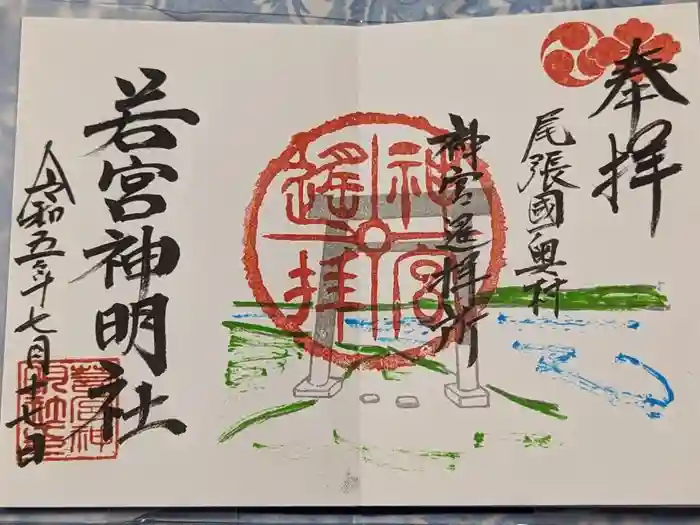 奉拝
尾張國奥村
神宮遥拝所
神宮遥拝
若宮神明社
令和五年七月十七日